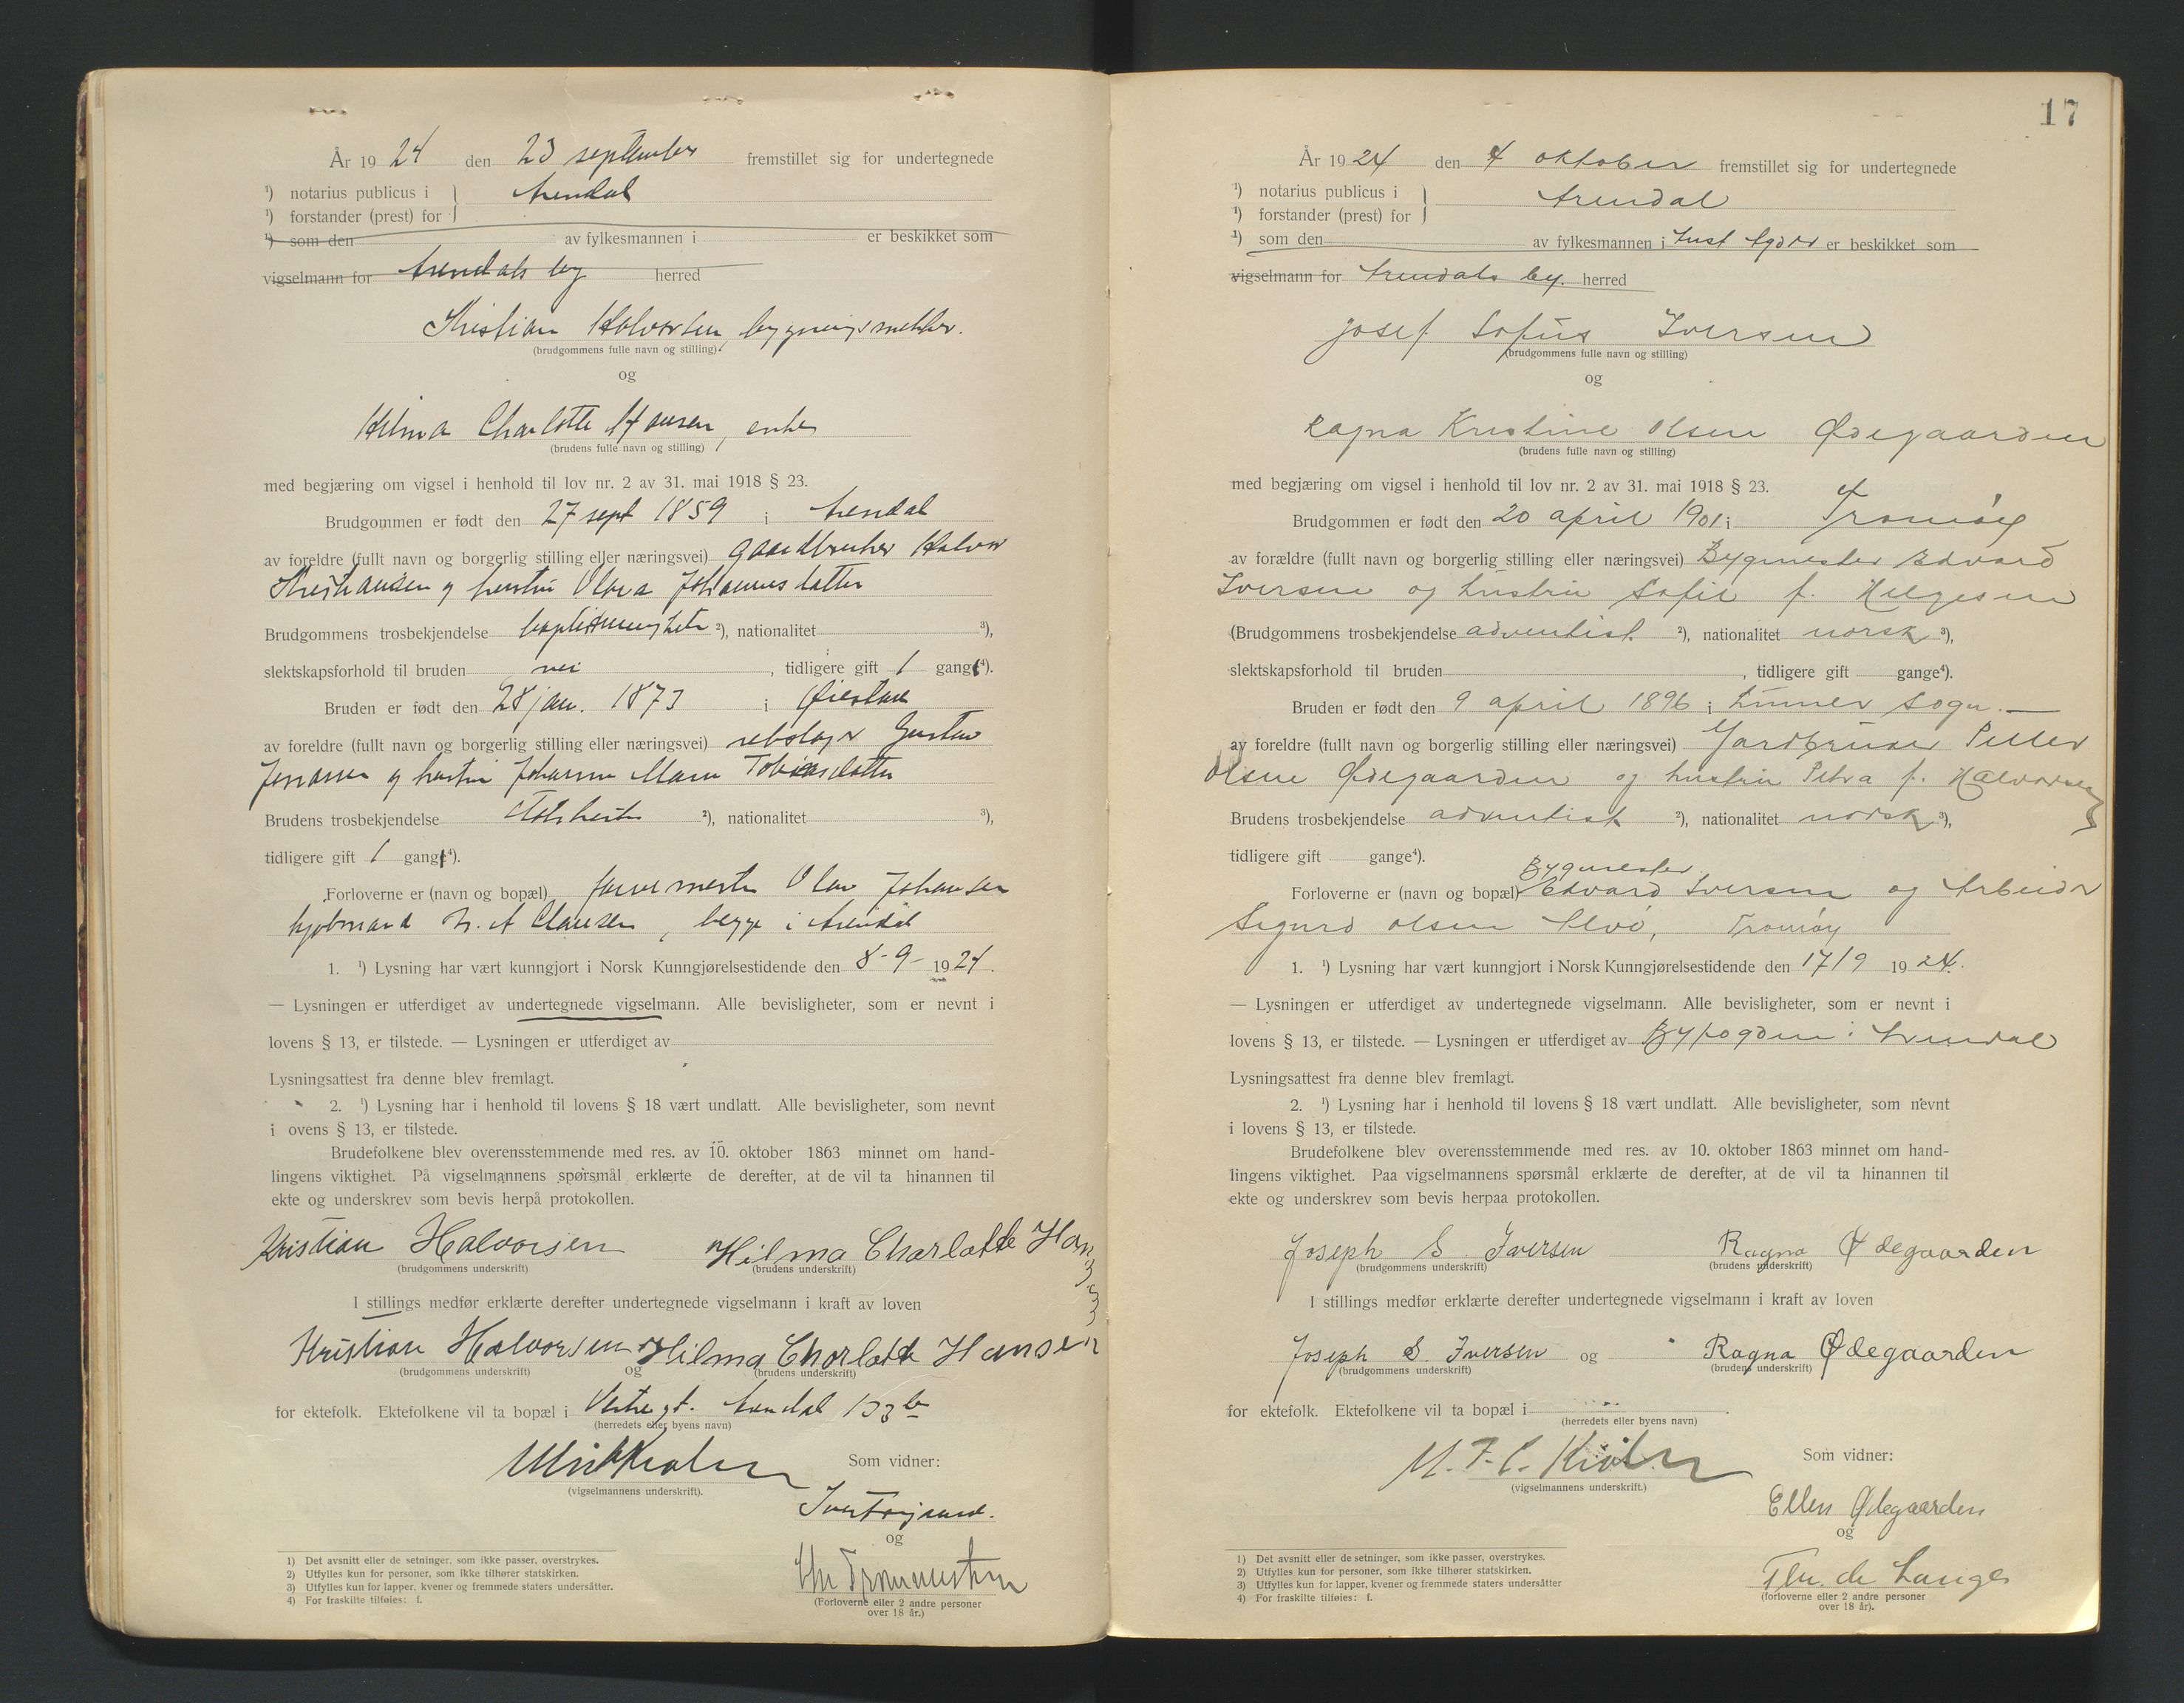 År 1924 den 23 september fremstillet sig for undertegnede
¹) notarius publicus i } Arendal
¹) forstander (prest) for
¹) som den av fylkesmannen i er beskikket som
vigselmann for Arendals by herred
Kristian Halvorsen, bygningssnekker.
(brudgommens fulle navn og stilling)
og
Hilma Charlotte Hansen, enke
(brudens fulle navn og stilling)
med begjæring om vigsel i henhold til lov nr. 2 av 31. mai 1918 § 23.
Brudgommen er født den 27 sept 1859 i Arendal
av foreldre (fullt navn og borgerlig stilling eller næringsvei) gaardbruker Halvor
Kristiansen og hustru Olava Johannesdatter
Brudgommens trosbekjendelse ²), nationalitet ³),
slektskapsforhold til bruden nei, tidligere gift 1 gang⁴).
Bruden er født den 28 jan. 1873 i Øiestad
av foreldre (fullt navn og borgerlig stilling eller næringsvei) rebslager Gustav
og hustru Johanne Maren Tobiasdatter
Brudens trosbekjendelse ²), nationalitet ³),
tidligere gift 1 gang⁴).
Forloverne er (navn og bopæl) Olav Johansen
kjøbmand A Clausen, begge i Arendal
1. ¹) Lysning har vært kunngjort i Norsk Kunngjørelsestidende den 8-9- 1924.
— Lysningen er utferdiget av undertegnede vigselmann. Alle bevisligheter, som er nevnt i
lovens § 13, er tilstede. — Lysningen er utferdiget av
Lysningsattest fra denne blev fremlagt.
2. ¹) Lysning har i henhold til lovens § 18 vært undlatt. Alle bevisligheter, som nevnt
i ovens § 13, er tilstede.
Brudefolkene blev overensstemmende med res. av 10. oktober 1863 minnet om hand-
lingens viktighet. På vigselmannens spørsmål erklærte de derefter, at de vil ta hinannen til
ekte og underskrev som bevis herpå protokollen.
Kristian Halvorsen Hilma Charlotte Hansen
(brudgommens underskrift) (brudens underskrift)
I stillings medfør erklærte derefter undertegnede vigselmann i kraft av loven
Kristian Halvorsen og Hilma Charlotte Hansen
(brudgommens underskrift) (brudens underskrift)
for ektefolk. Ektefolkene vil ta bopæl i Arendal
(herredets eller byens navn)
Som vidner:
(vigselmannens underskrift).
og
(Forloverne eller 2 andre personer
over 18 år.)
1) Det avsnitt eller de setninger, som ikke passer, overstrykes.
2) Utfylles kun for personer, som ikke tilhører statskirken.
3) Utfylles kun for lapper, kvener og fremmede staters undersåtter.
4) For fraskilte tilføies: f.
17
År 1924 den 4 oktober fremstillet sig for undertegnede
¹) notarius publicus i } Arendal
¹) forstander (prest) for
¹) som den av fylkesmannen i Aust Agder er beskikket som
vigselmann for Arendals by. herred
Josef Sofus Iversen
(brudgommens fulle navn og stilling)
og
Ragna Kristine Olsen Ødegaarden
(brudens fulle navn og stilling)
med begjæring om vigsel i henhold til lov nr. 2 av 31. mai 1918 § 23.
Brudgommen er født den 20 april 1901 i Tromøy
av forældre (fullt navn og borgerlig stilling eller næringsvei) Bygmester Edvard
Iversen og hustru Sofie f. Helgesen
(Brudgommens trosbekjendelse adventist ²), nationalitet norsk ³),
slektskapsforhold til bruden , tidligere gift gange⁴).
Bruden er født den 9 april 1896 i Lunner sogn. —
av foreldre (fullt navn og borgerlig stilling eller næringsvei) Gardbruker Petter
Olsen Ødegaarden og hustru Petra f. Halvorsen
Brudens trosbekjendelse adventist ²), nationalitet norsk ³),
tidligere gift gange⁴).
Bygmester
Forloverne er (navn og bopæl) Edvard Iversen og Arbeider
Sigurd Olsen Alvø, Tromøy
1. ¹) Lysning har vært kunngjort i Norsk Kunngjørelsestidende den 17/9 1924.
— Lysningen er utferdiget av undertegnede vigselmann. Alle bevisligheter, som er nevnt i
lovens § 13, er tilstede. — Lysningen er utferdiget av Byfogden i Arendal
Lysningsattest fra denne blev fremlagt.
2. ¹) Lysning har i henhold til lovens § 18 vært undlatt. Alle bevisligheter, som nevnt
i lovens § 13, er tilstede.
Brudefolkene blev overensstemmende med res. av 10. oktober 1863 minnet om hand-
lingens viktighet. Paa vigselmannens spørsmål erklærte de derefter, at de vil ta hinannen til
ekte og underskrev som bevis herpaa protokollen.
Joseph S. Iversen Ragna Ødegaarden
(brudgommens underskrift) (brudens underskrift)
I stillings medfør erklærte derefter undertegnede vigselmann i kraft av loven
Joseph S. Iversen og Ragna Ødegaarden
(brudgommens underskrift) (brudens underskrift)
for ektefolk. Ektefolkene vil ta bopæl i
(herredets eller byens navn)
Som vidner:
(vigselmannens underskrift.)
Ellen Ødegaarden
og
Thv. de Lange
(forloverne eller 2 andre personer
over 18 år).
1) Det avsnitt eller de setninger, som ikke passer, overstrykes.
2) Utfylles kun for personer, som ikke tilhører statskirken.
3) Utfylles kun for lapper, kvener og fremmede staters undersåtter
4) For fraskilte tilføies: f.